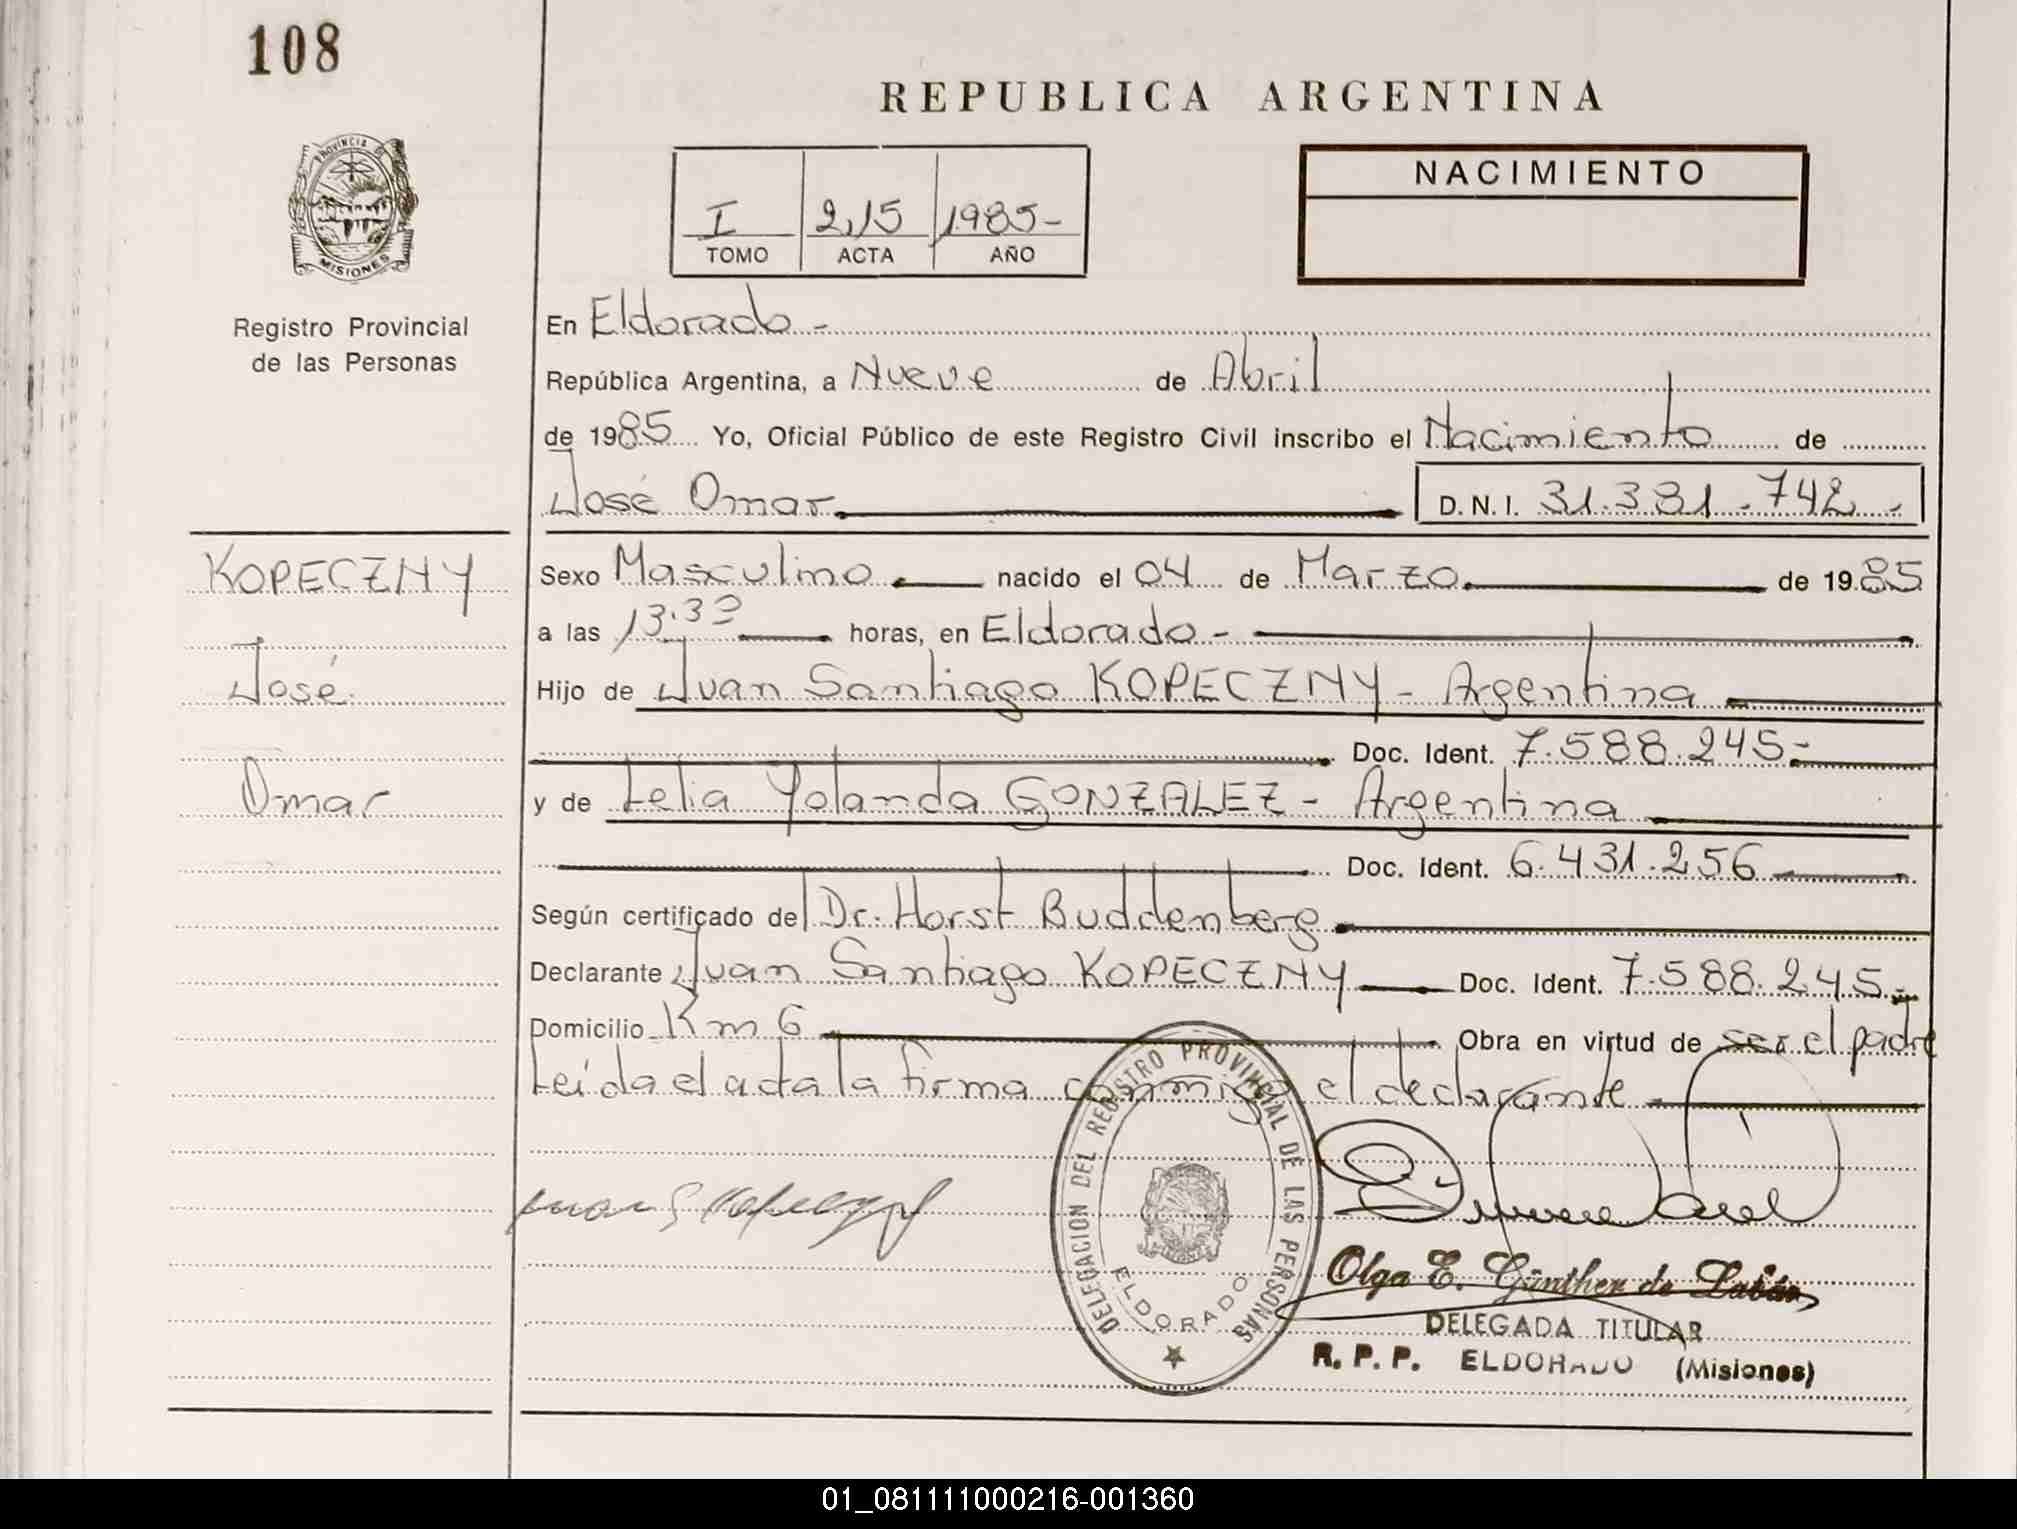 108
REPUBLICA ARGENTINA
PROVINCIA DE
MISIONES
I 215 1985-
TOMO ACTA AÑO
NACIMIENTO
Registro Provincial
de las Personas
En Eldorado -
República Argentina, a Nueve de Abril
de 1985 Yo, Oficial Público de este Registro Civil inscribo el Nacimiento de
José Omar D.N.I. 31.331.742-
KOPECZNY
José
Omar
Sexo Masculino nacido el 04 de Marzo de 1985
a las 13.30 horas, en Eldorado -
Hijo de Juan Santiago KOPECZNY - Argentina
Doc. Ident. 7.588.245-
y de Lelia Yolanda GONZALEZ - Argentina
Doc. Ident. 6.431.256
Según certificado del Dr. Horst Buddenberg
Declarante Juan Santiago KOPECZNY Doc. Ident. 7.588.245-
Domicilio Km 6 Obra en virtud de ser el padre
Leída el acta la firma conmigo el declarante
DELEGACION DEL REGISTRO PROVINCIAL DE LAS PERSONAS
ELDORADO
Juan S Kopeczny
Olga E. Günther de
DELEGADA TITULAR
R. P. P. ELDORADO (Misiones)
01_081111000216-001360